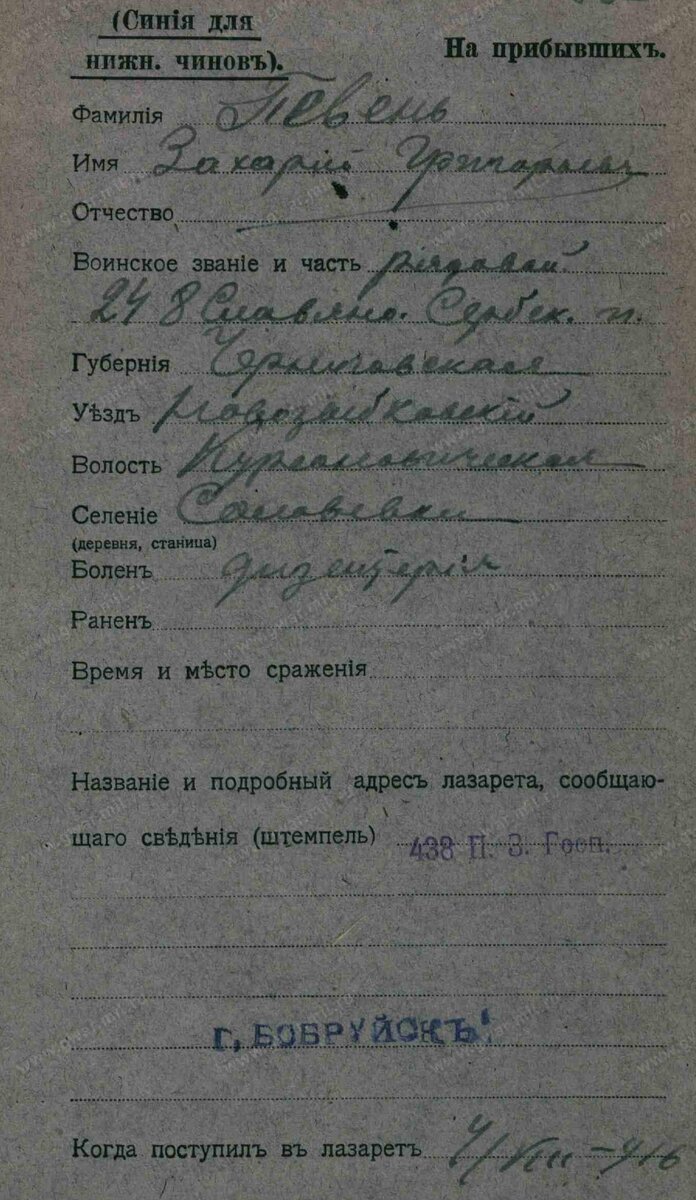 (Синія для
нижн. чиновъ).
На прибывшихъ.
Фамилія Певень
Имя Захарій Григорьев
Отчество
Воинское званіе и часть рядовой
248 Славяно. Сербск. п.
Губернія Черниговская
Уѣздъ Новозыбковскій
Волость
Селеніе Соловьевки
(деревня, станица)
Боленъ дизентерія
Раненъ
Время и мѣсто сраженія
Названіе и подробный адресъ лазарета, сообщаю-
щаго свѣдѣнія (штемпель) 438 П. З. Госп.
г. БОБРУЙСКЪ
Когда поступилъ въ лазаретъ